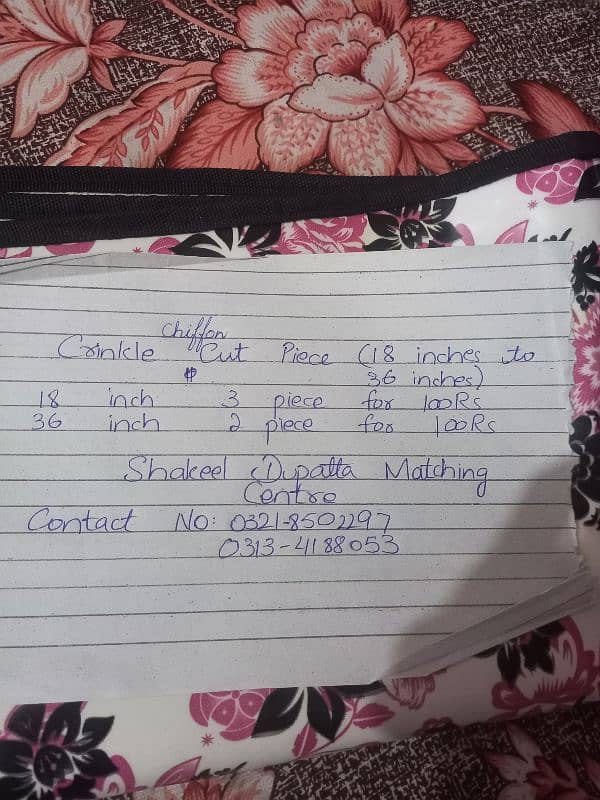 Crinkle Chiffon Cut Piece (18 inches to
36 inches)
18 inch 3 piece for 100Rs
36 inch 2 piece for 100Rs
Shakeel Dupatta Matching
Centre
Contact No: 0321-8502297
0313-4188053